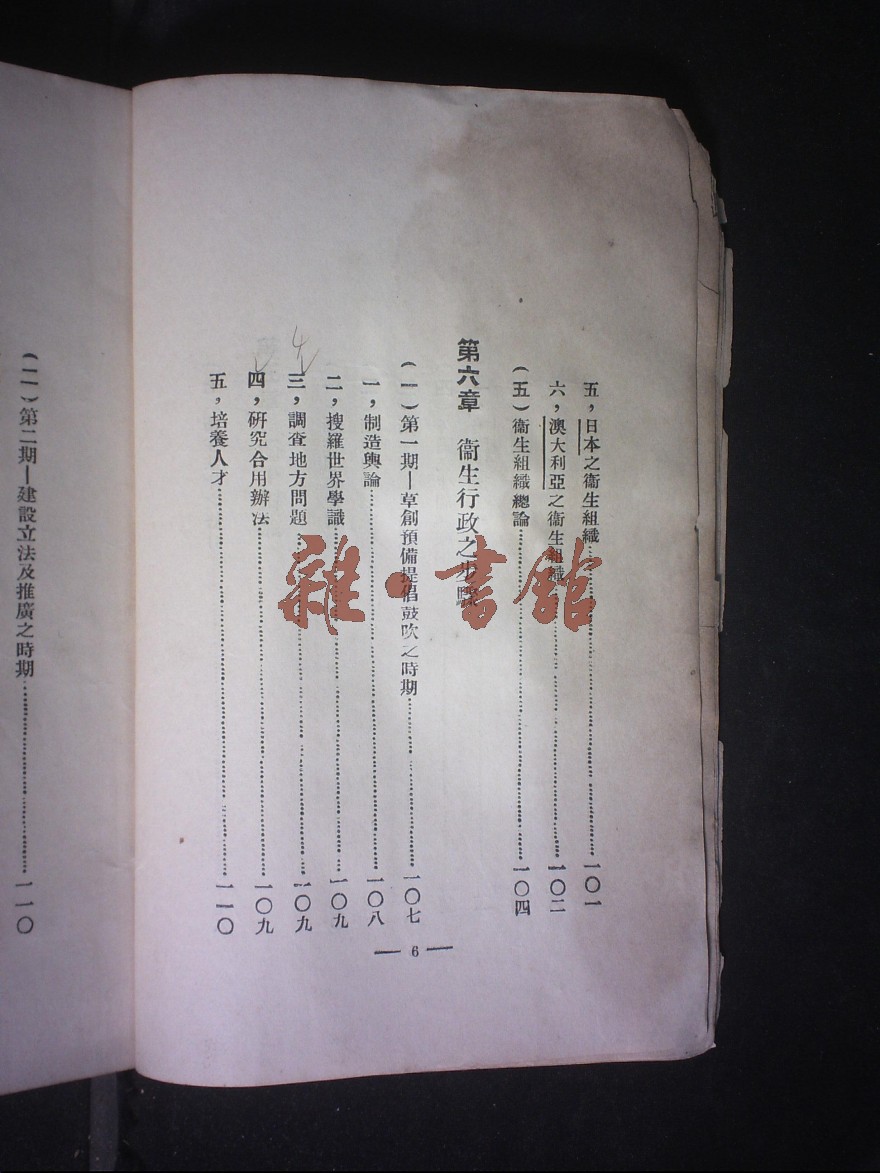 五，日本之衞生組織……一〇一
六，澳大利亞之衞生組織……一〇二
（五）衞生組織總論……一〇四
第六章　衞生行政之步驟
（一）第一期—草創預備提倡鼓吹之時期……一〇七
一，制造輿論……一〇八
二，搜羅世界學識……一〇九
三，調査地方問題……一〇九
四，研究合用辦法……一〇九
五，培養人才……一一〇
— 6 —
（二）第二期—建設立法及推廣之時期……一一〇
雜·書館